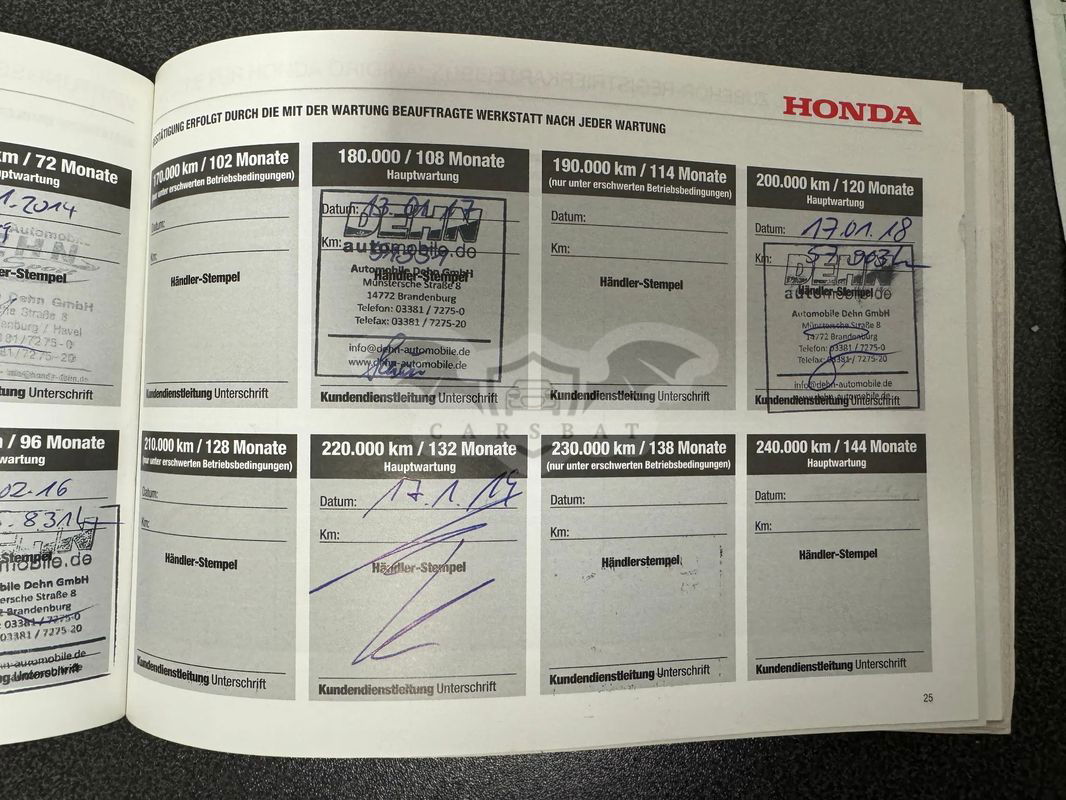 HONDA
BESTÄTIGUNG ERFOLGT DURCH DIE MIT DER WARTUNG BEAUFTRAGTE WERKSTATT NACH JEDER WARTUNG
km / 72 Monate
Hauptwartung
1.2014
Händler-Stempel
Dehn GmbH
Straße 8
enburg / Havel
81/7275-0
81/7275-20
Unterschrift
170.000 km / 102 Monate
(nur unter erschwerten Betriebsbedingungen)
Datum:
Km:
Händler-Stempel
Kundendienstleitung Unterschrift
180.000 / 108 Monate
Hauptwartung
Datum: 13.01.17
Km:
DEHN
automobile.de
Händler-Stempel
Automobile Dehn GmbH
Münstersche Straße 8
14772 Brandenburg
Telefon: 03381 / 7275-0
Telefax: 03381 / 7275-20
info@dehn-automobile.de
www.dehn-automobile.de
Kundendienstleitung Unterschrift
190.000 km / 114 Monate
(nur unter erschwerten Betriebsbedingungen)
Datum:
Km:
Händler-Stempel
Kundendienstleitung Unterschrift
200.000 km / 120 Monate
Hauptwartung
Datum: 17.01.18
Km:
DEHN
Händler-Stempel
automobile.de
Automobile Dehn GmbH
Münstersche Straße 8
14772 Brandenburg
Telefon: 03381 / 7275-0
Telefax: 03381 / 7275-20
info@dehn-automobile.de
www.dehn-automobile.de
Kundendienstleitung Unterschrift
CARSBAT
/ 96 Monate
wartung
02.16
8314
Stempel
mobile.de
bile Dehn GmbH
ersche Straße 8
Brandenburg
03381 / 7275-0
03381 / 7275-20
automobile.de
Unterschrift
210.000 km / 128 Monate
(nur unter erschwerten Betriebsbedingungen)
Datum:
Km:
Händler-Stempel
Kundendienstleitung Unterschrift
220.000 km / 132 Monate
Hauptwartung
Datum: 17.1.19
Km:
Händler-Stempel
Kundendienstleitung Unterschrift
230.000 km / 138 Monate
(nur unter erschwerten Betriebsbedingungen)
Datum:
Km:
Händlerstempel
Kundendienstleitung Unterschrift
240.000 km / 144 Monate
Hauptwartung
Datum:
Km:
Händler-Stempel
Kundendienstleitung Unterschrift
25